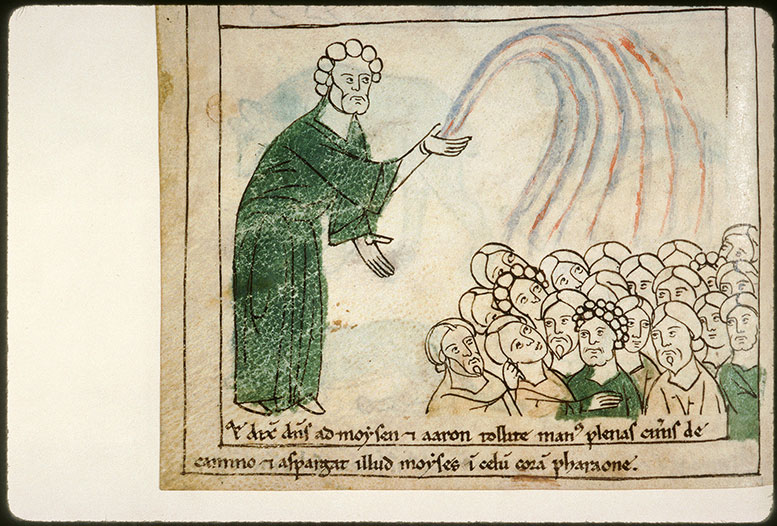 Et dix̄ dn̄s ad moẏsen ⁊ aaron tollite manꝰ plenas cin̄is de
camino ⁊ aspargat illud moẏses ī celū corā pharaone.